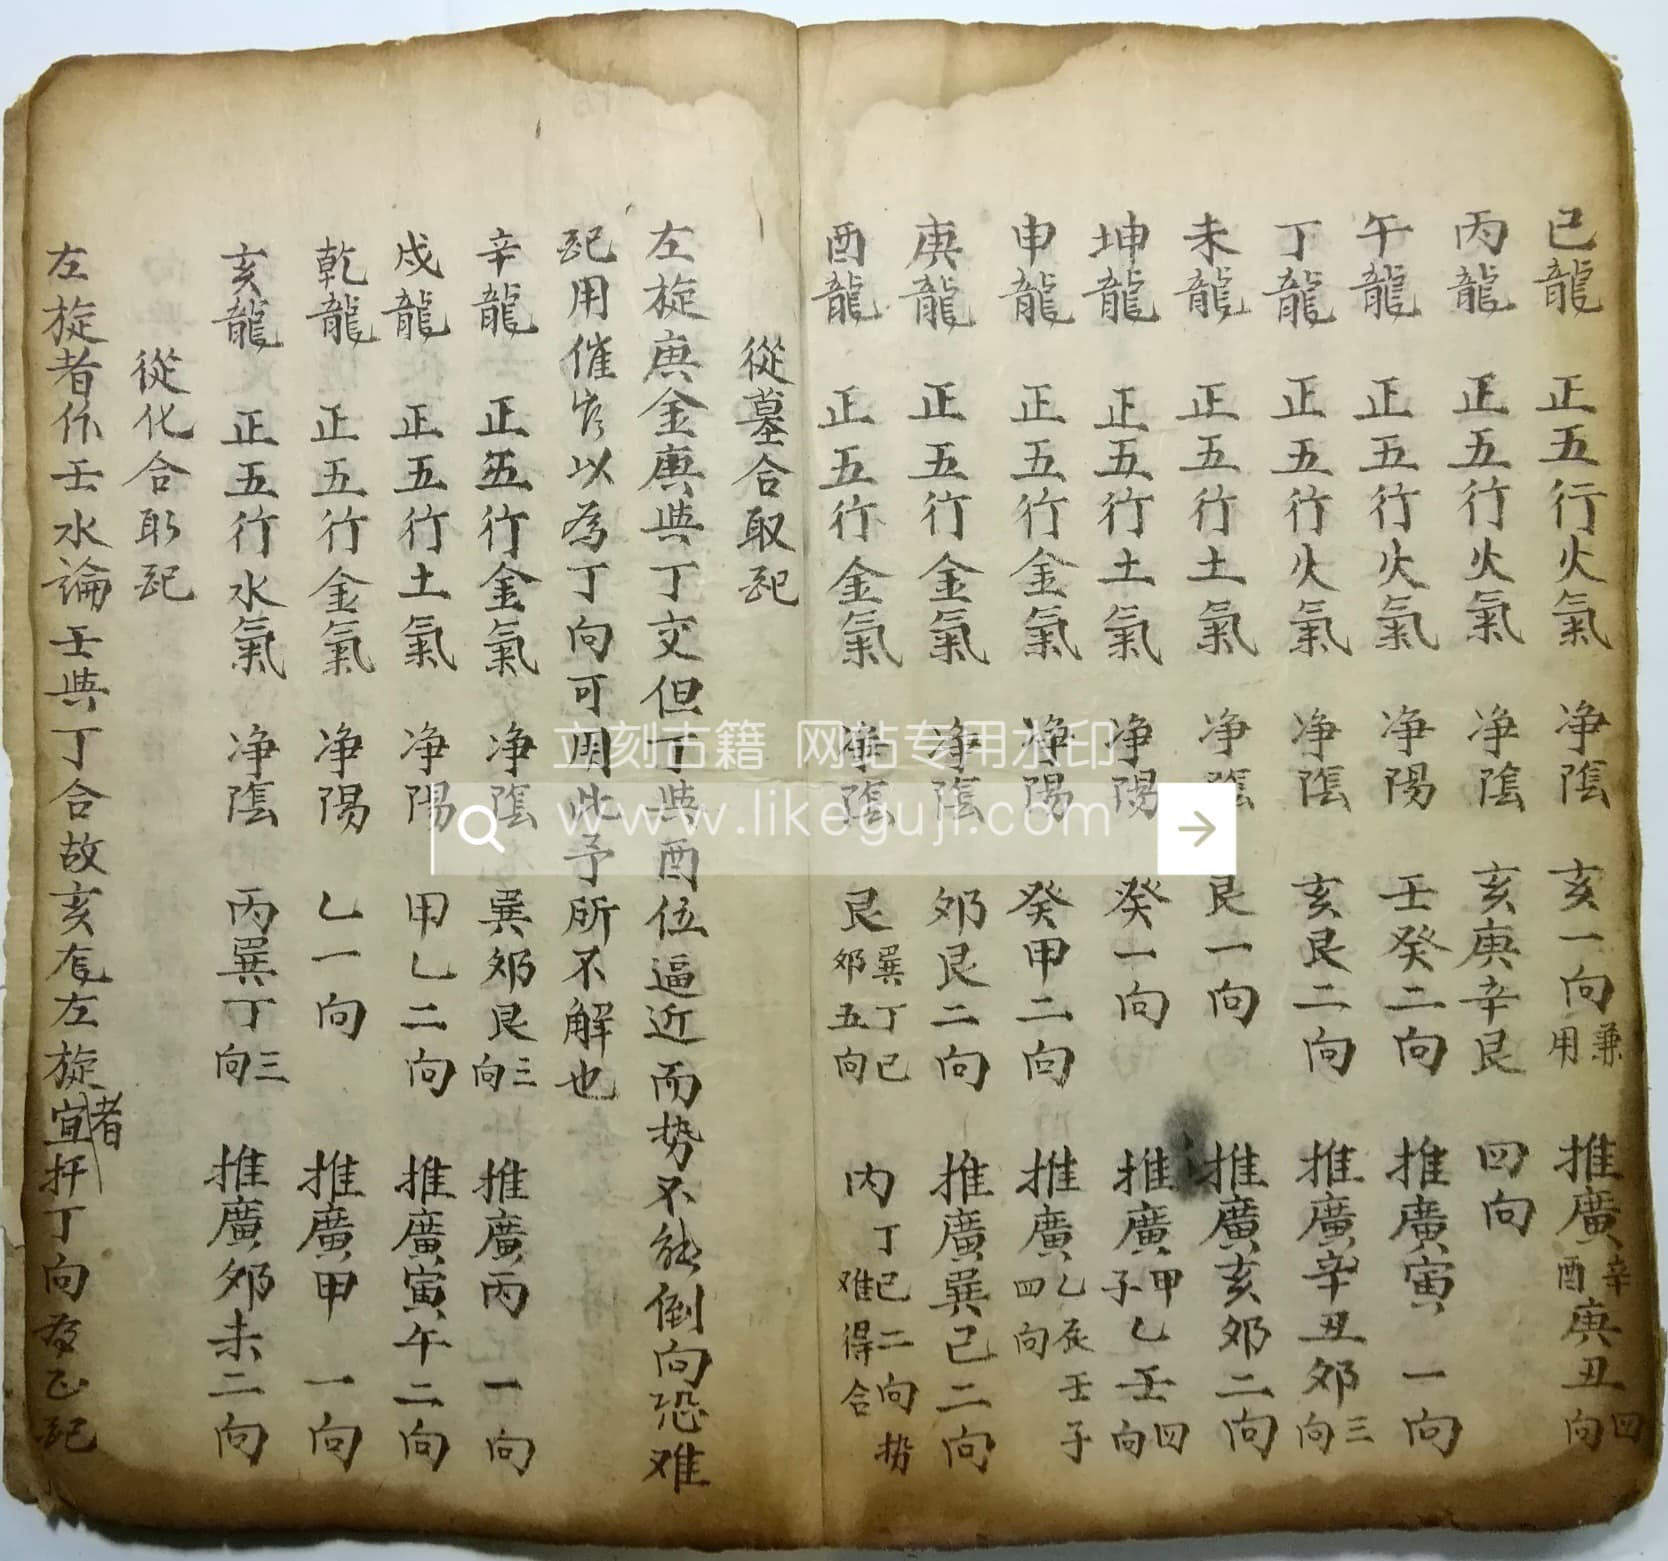 巳龍 正五行火氣 净陰 亥一向兼用 推廣辛酉庚丑四向
丙龍 正五行火氣 净陰 亥庚辛艮 四向
午龍 正五行火氣 净陽 壬癸二向 推廣寅 一向
丁龍 正五行火氣 净陰 亥艮二向 推廣辛丑夘三向
未龍 正五行土氣 净陰 艮一向 推廣亥夘二向
坤龍 正五行土氣 净陽 癸一向 推廣甲子乙壬四向
申龍 正五行金氣 净陽 癸甲二向 推廣乙辰壬子四向
庚龍 正五行金氣 净陰 夘艮二向 推廣巽巳二向
酉龍 正五行金氣 净陰 艮巽丁巳夘五向 内丁巳二向勢难得合
從墓合取
左旋庚金庚與丁交但丁與酉伍逼近而势不能倒向恐难
用催官以為丁向可用此予所不解也
辛龍 正五行金氣 净陰 巽夘艮三向 推廣丙 一向
戌龍 正五行土氣 净陽 甲乙二向 推廣寅午二向
乾龍 正五行金氣 净陽 乙一向 推廣甲 一向
亥龍 正五行水氣 净陰 丙巽丁三向 推廣夘未二向
從化合取
左旋者作壬水論壬與丁合故亥龍左旋者宜扦丁向為正
立刻古籍 网站专用水印
www.likeguji.com